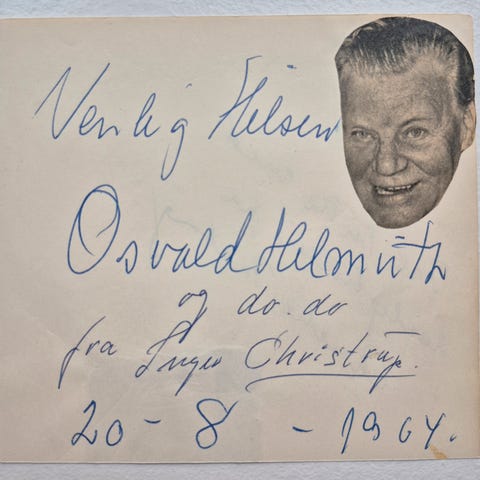 Venlig Hilsen
Osvald Helmuth
og do. do
fra Inger Christrup.
20 - 8 - 1964.